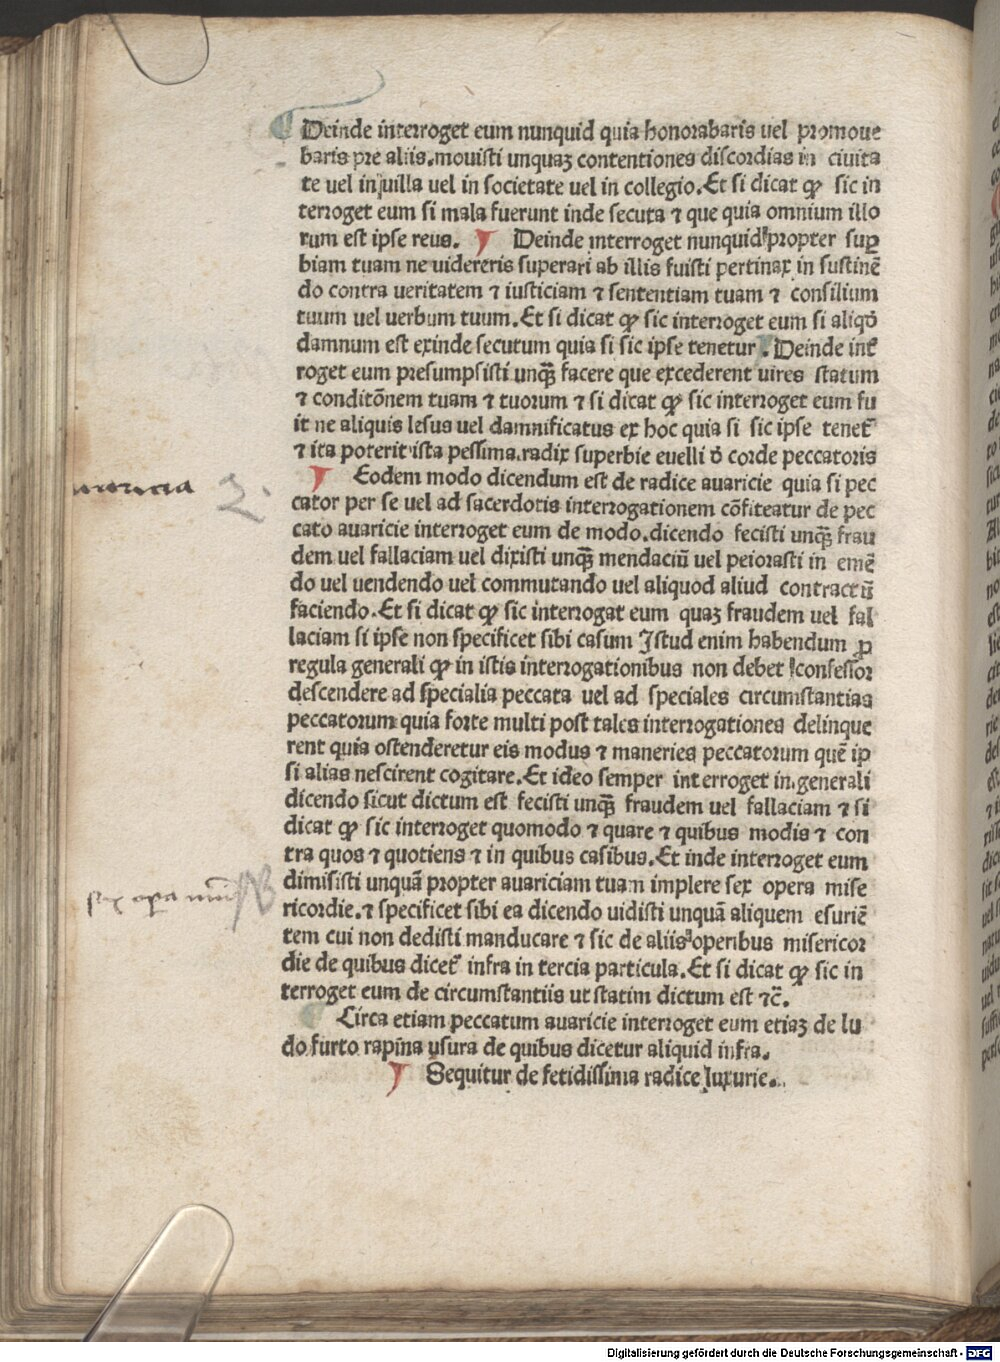 Deinde interroget eum nunquid quia honorabaris uel promoue
baris pre aliis.mouisti unquaꝫ contentiones discordias in ciuita
te uel in uilla uel in societate uel in collegio.Et si dicat ꝙ sic in
terroget eum si mala fuerunt inde secuta ⁊ que quia omnium illo
rum est ipse reus. Deinde interroget nunquid propter suꝑ
biam tuam ne uidereris superari ab illis fuisti pertinax in sustinē
do contra ueritatem ⁊ iusticiam ⁊ sententiam tuam ⁊ consilium
tuum uel uerbum tuum.Et si dicat ꝙ sic interroget eum si aliqḋ
damnum est exinde secutum quia si sic ipse tenetur. Deinde int̄
roget eum presumpsisti unq̄ꝫ facere que excederent uires statum
⁊ conditōnem tuam ⁊ tuorum ⁊ si dicat ꝙ sic interroget eum fu
it ne aliquis lesus uel damnificatus ex hoc quia si sic ipse tenet᷑
⁊ ita poterit ista pessima radix superbie euelli ḋ corde peccatoris
Eodem modo dicendum est de radice auaricie quia si pec
auaricia 2.
cator per se uel ad sacerdotis interrogationem cōfiteatur de pec
cato auaricie interroget eum de modo.dicendo fecisti unq̄ꝫ frau
dem uel fallaciam uel dixisti unq̄ꝫ mendaciū uel peiorasti in emē
do uel uendendo uel commutando uel aliquod aliud contractū
faciendo.Et si dicat ꝙ sic interrogat eum quaꝫ fraudem uel fal
laciam si ipse non specificet sibi casum Istud enim habendum ꝓ
regula generali ꝙ in istis interrogationibus non debet confessor
descendere ad specialia peccata uel ad speciales circumstantias
peccatorum quia forte multi post tales interrogationes delinque
rent quia ostenderetur eis modus ⁊ maneries peccatorum quē ip
si alias nescirent cogitare.Et ideo semper interroget in generali
dicendo sicut dictum est fecisti unq̄ꝫ fraudem uel fallaciam ⁊ si
dicat ꝙ sic interroget quomodo ⁊ quare ⁊ quibus modis ⁊ con
tra quos ⁊ quotiens ⁊ in quibus casibus.Et inde interroget eum
dimisisti unquā propter auariciam tuam implere sex opera mise
sex opa
ricordie.⁊ specificet sibi ea dicendo uidisti unquā aliquem esuriē
tem cui non dedisti manducare ⁊ sic de aliis operibus misericor
die de quibus dicet᷑ infra in tercia particula.Et si dicat ꝙ sic in
terroget eum de circumstantiis ut statim dictum est ⁊c̄.
Circa etiam peccatum auaricie interroget eum etiaꝫ de lu
do furto rapina usura de quibus dicetur aliquid infra.
Sequitur de fetidissima radice luxurie.
Digitalisierung gefördert durch die Deutsche Forschungsgemeinschaft - DFG